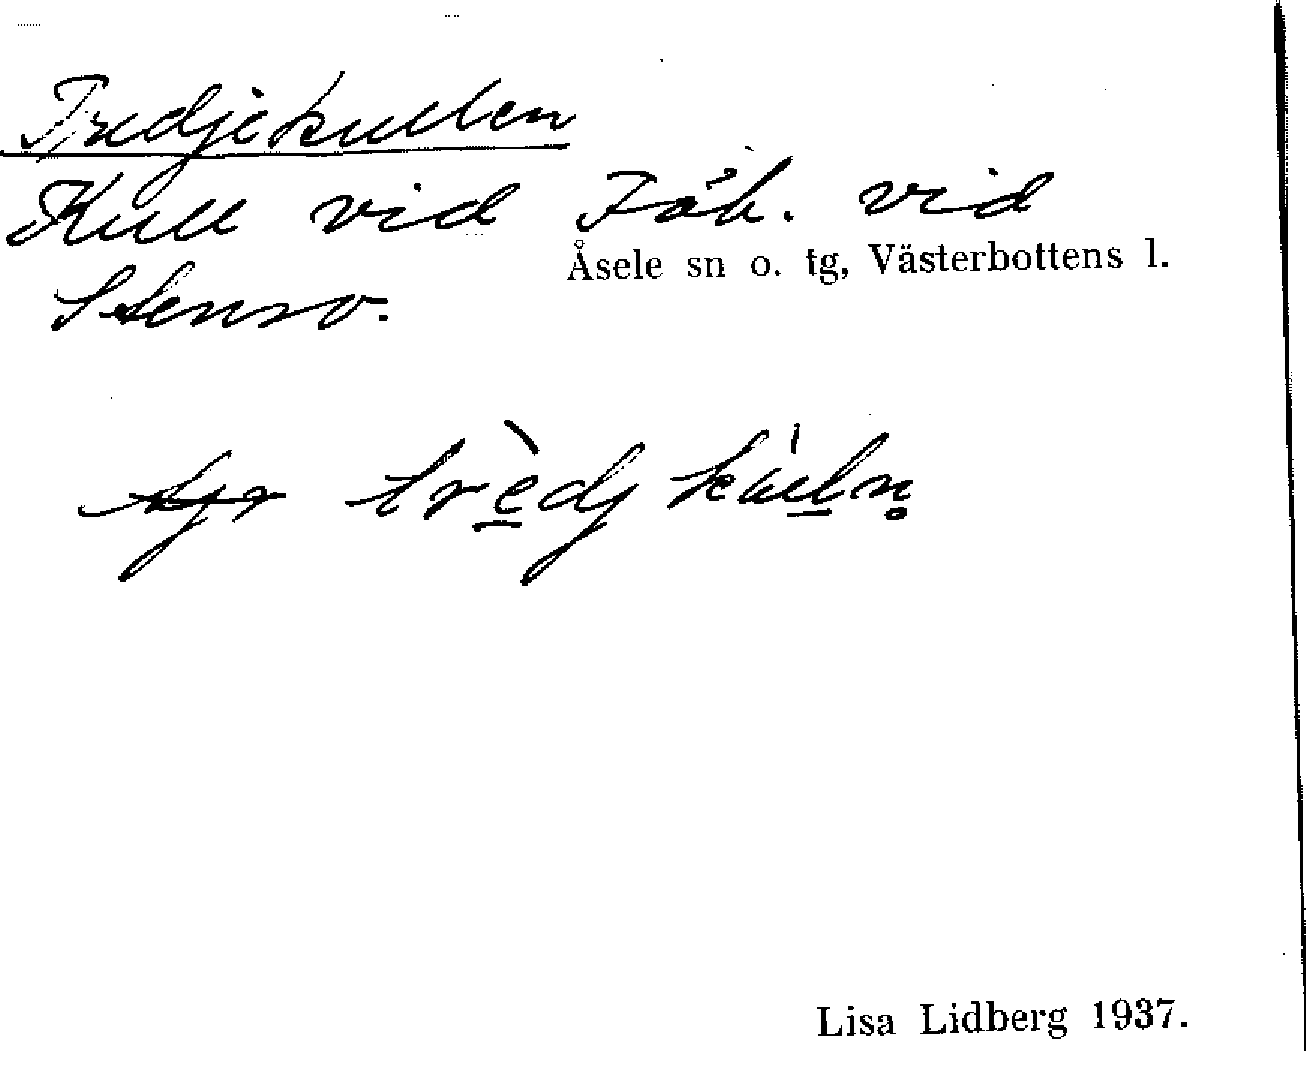 Tredjekullen
Kull vid Töh. vid
Åsele sn o. tg, Västerbottens l.
Stensv.
trèdjkúln̥
Lisa Lidberg 1937.